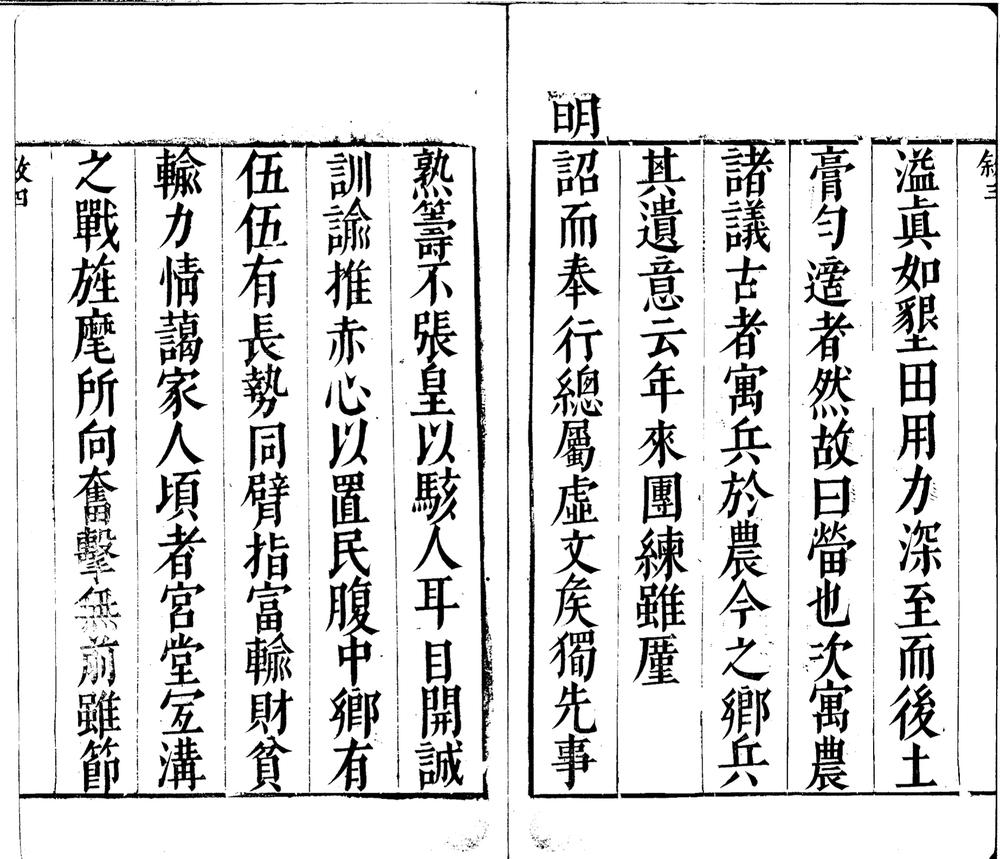 敘三
溢眞如墾田用力深至而後土
膏勻遼者然故曰當也次寓農
諸議古者寓兵於農今之鄉兵
其遺意云年來團練雖厪
明
詔而奉行總屬虛文矣獨先事
熟籌不張皇以駭人耳目開誠
訓諭推赤心以置民腹中鄉有
伍伍有長勢同臂指富輸財貧
輸力情藹家人頃者宮堂㝉溝
之戰旌麾所向奮擊無前雖節
敘四